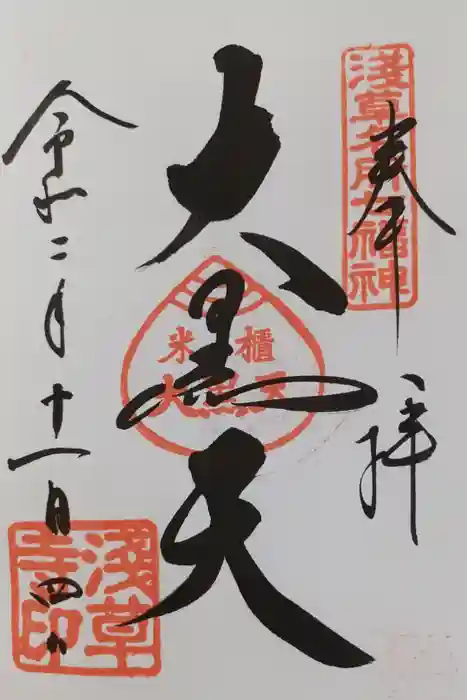 浅草名所七福神
奉拝
大黒天
米櫃
大黒天
令和二年十一月四日
浅草寺印